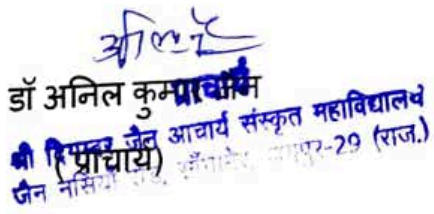 अनिल
डॉ अनिल कुमार जैन
प्राचार्य
श्री दिगम्बर जैन आचार्य संस्कृत महाविद्यालय
(प्राचार्य)
जैन नसियाँ रोड, सांगानेर, जयपुर-29 (राज.)